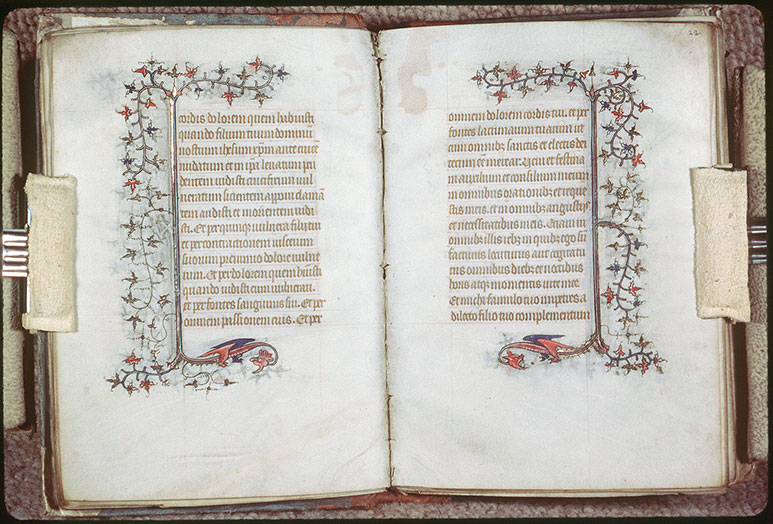 cordis dolorem quem habuisti
quando filium tuum dominum
nostrum ihesum xpm ante cruce
nudatum et in ipsa levatum pen
dentem vidisti crucifixum vul
neratum sicientem apponi claman
tem audisti et morientem vidi
sti. Et per quinque vulnera filii tui
et per contractionem viscerum
suorum pre nimio dolore vulne
rum. Et per dolorem quem habuisti
quando vidisti eum vulnerari.
et per fontes sanguinis sui. Et per
omnem passionem eius. Et per
22
omnem dolorem cordis tui. et per
fontes lacrimarum tuarum ut
cum omnibz sanctis et electis dei
Veni et festina
in auxilium et consilium meum
in omnibus orationibz et reque
stis meis. et in omnibz angustijs
et necessitatibus meis. Et in
omnibz illis rebz in quibz ego sum
facturus locuturus aut cogitatu
rus omnibus diebz et noctibus
horis atqz momentis vite mee
Et michi famulo tuo impetres a
dilecto filio tuo complementum